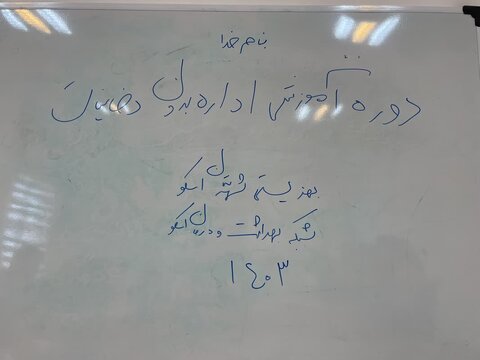 بنام خدا
دوره آموزشی اداره بدون دخانیات
بهزیستی شهرستان اسکو
شبکه بهداشت و درمان اسکو
۱۴۰۳